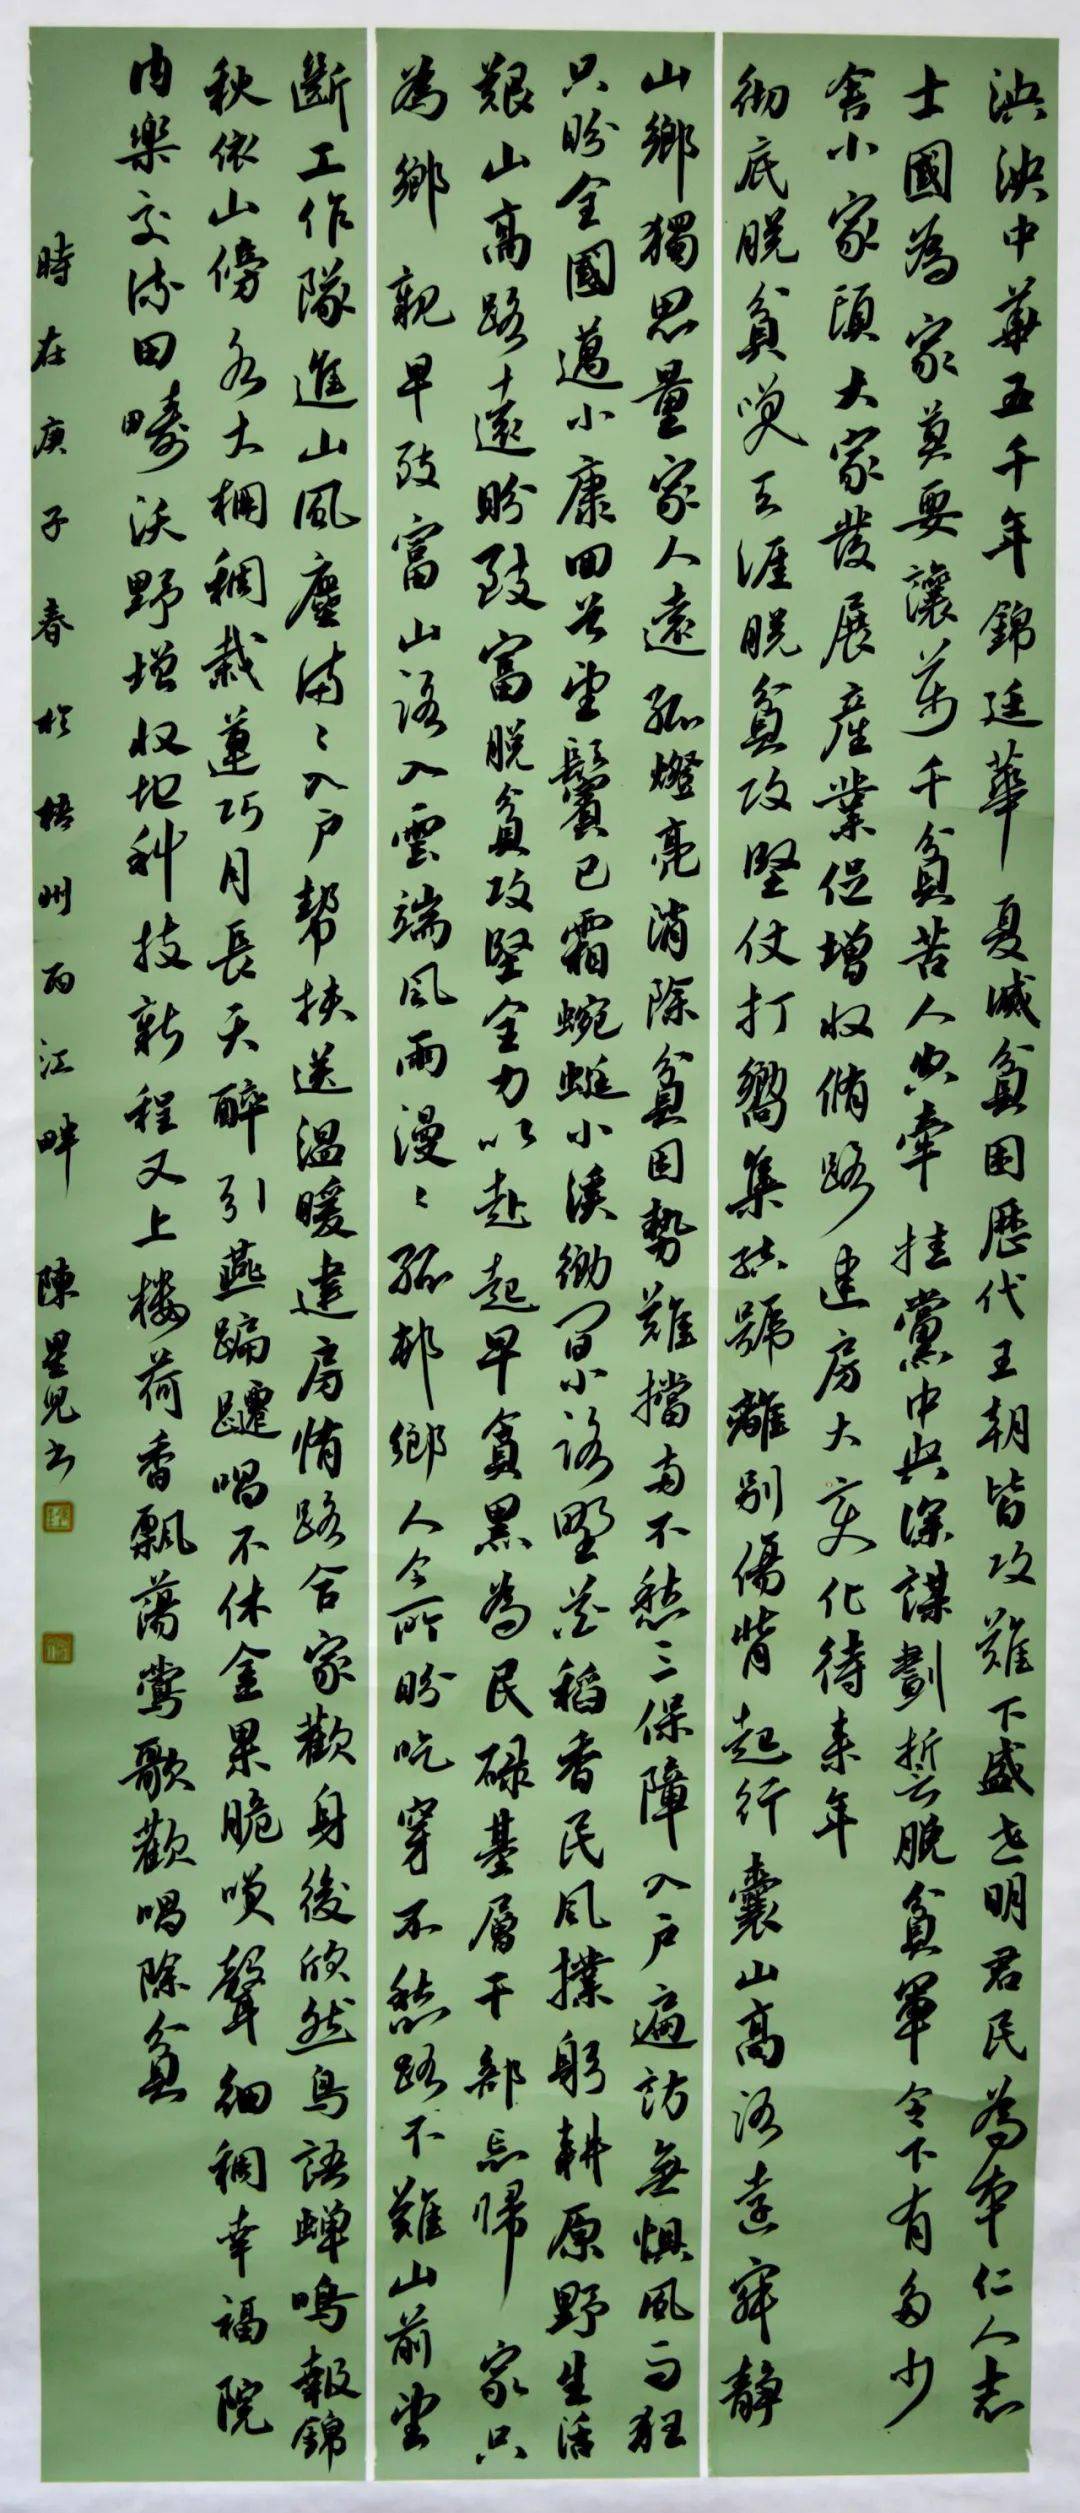 泱泱中華五千年錦延華夏減貧困歷代王朝皆攻難下盛世明君民為本仁人志
士國為家莫要讓萬千貧苦人空牽挂黨中央深謀劃誓脫貧軍令下有多少
舍小家顧大家發展產業促增收脩路建房大變化待來年
彻底脫貧笑天涯脫貧攻堅仗打響集結號離別傷背起行囊山高路遠寂静
山鄉獨思量家人遠孤燈亮消除貧困勢難擋每不愁三保障入户遍訪無惧風雨狂
只盼全國邁小康回首望鬢已霜蜿蜒小溪鄉間小路野花稻香民風樸躬耕原野生活
艱山高路十遠盼致富脫貧攻堅全力以赴起早貪黑為民碌基層干部忘歸家只
為鄉親早致富山路入雲端風雨漫漫孤村鄉人今所盼吃穿不愁路不難山前望
斷工作隊進山風塵滿滿入户帮扶送温暖建房脩路合家歡身後欣然鳥語蟬鳴報錦
秋依山傍水大棚稠栽蓮巧月長天醉引燕蹁躚唱不休金果脆喚聲细稠幸福院
内樂交流田疇沃野增收地科技新程又上樓荷香飄蕩鶯歌歡唱除貧
時在庚子春於梧州西江畔 陳星兒书